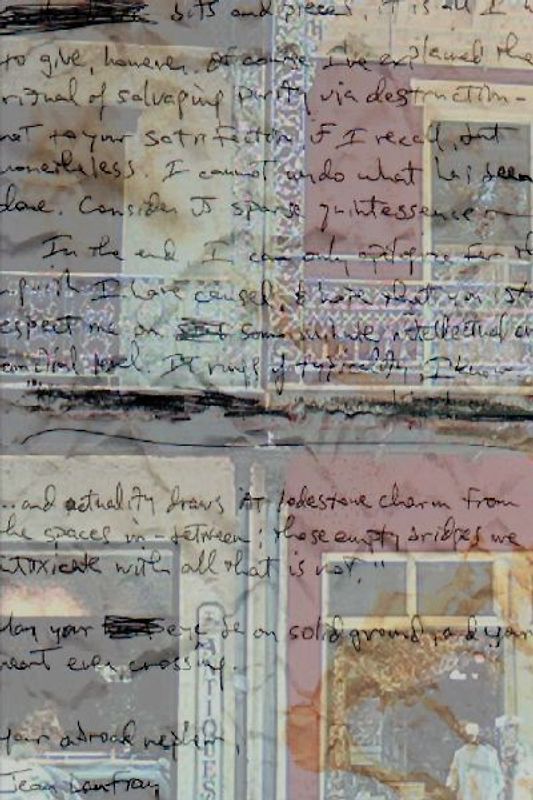 bits and pieces, it is all I h
to give, however. Of course I've explained the
ritual of salvaging purity via destruction -
not to your satisfaction, if I recall, but
nonetheless. I cannot undo what has been
done. Consider It sparse quintessence
In the end I can only apologize for th
nguish I have caused, & hope that you
espect me on some minute intellectual
level. It rings of atypicality, I know
...and actuality draws its lodestone charm from
he spaces in-between; those empty bridges we
intoxicate with all that is not."
May your eye be on solid ground, and your
heart ever crossing.
your
Jean